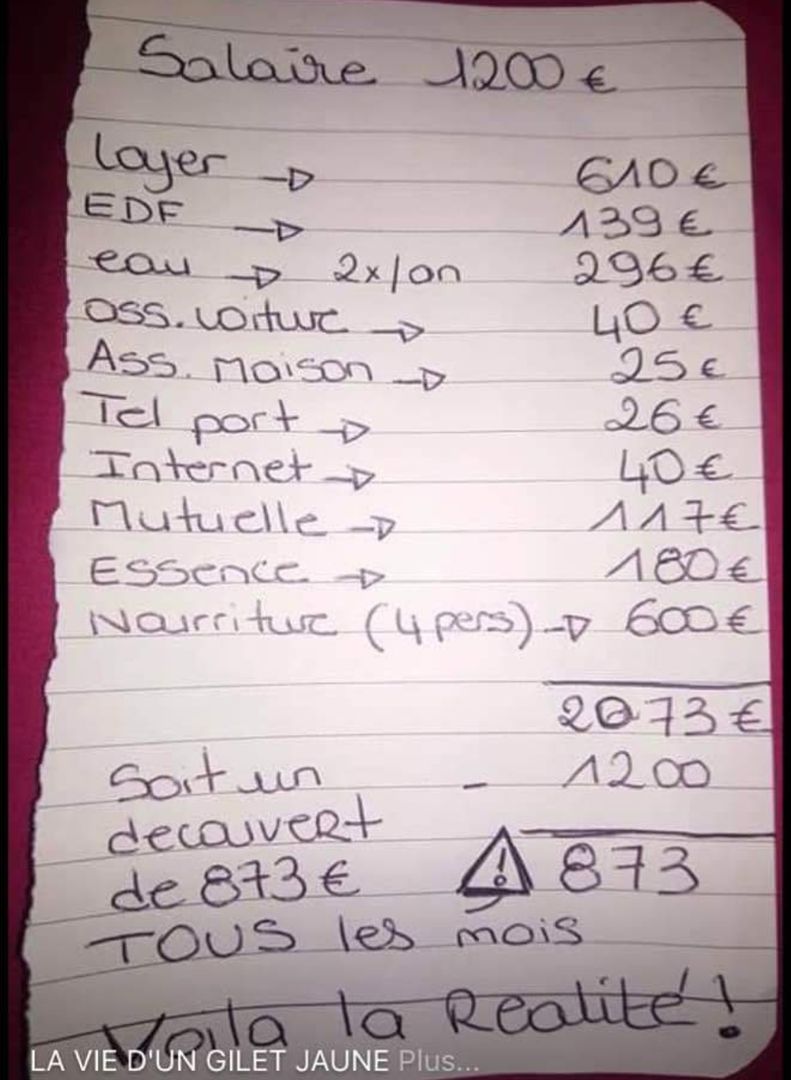 Salaire 1200 €
Loyer → 610 €
EDF → 139 €
eau → 2x/an 296 €
Ass. voiture → 40 €
Ass. Maison → 25 €
Tel port → 26 €
Internet → 40 €
Mutuelle → 117 €
Essence → 180 €
Nourriture (4 pers) → 600 €
2073 €
Soit un - 1200
decouvert
de 873 € ⚠ 873
TOUS les mois
Voila la Realité !
LA VIE D'UN GILET JAUNE Plus...